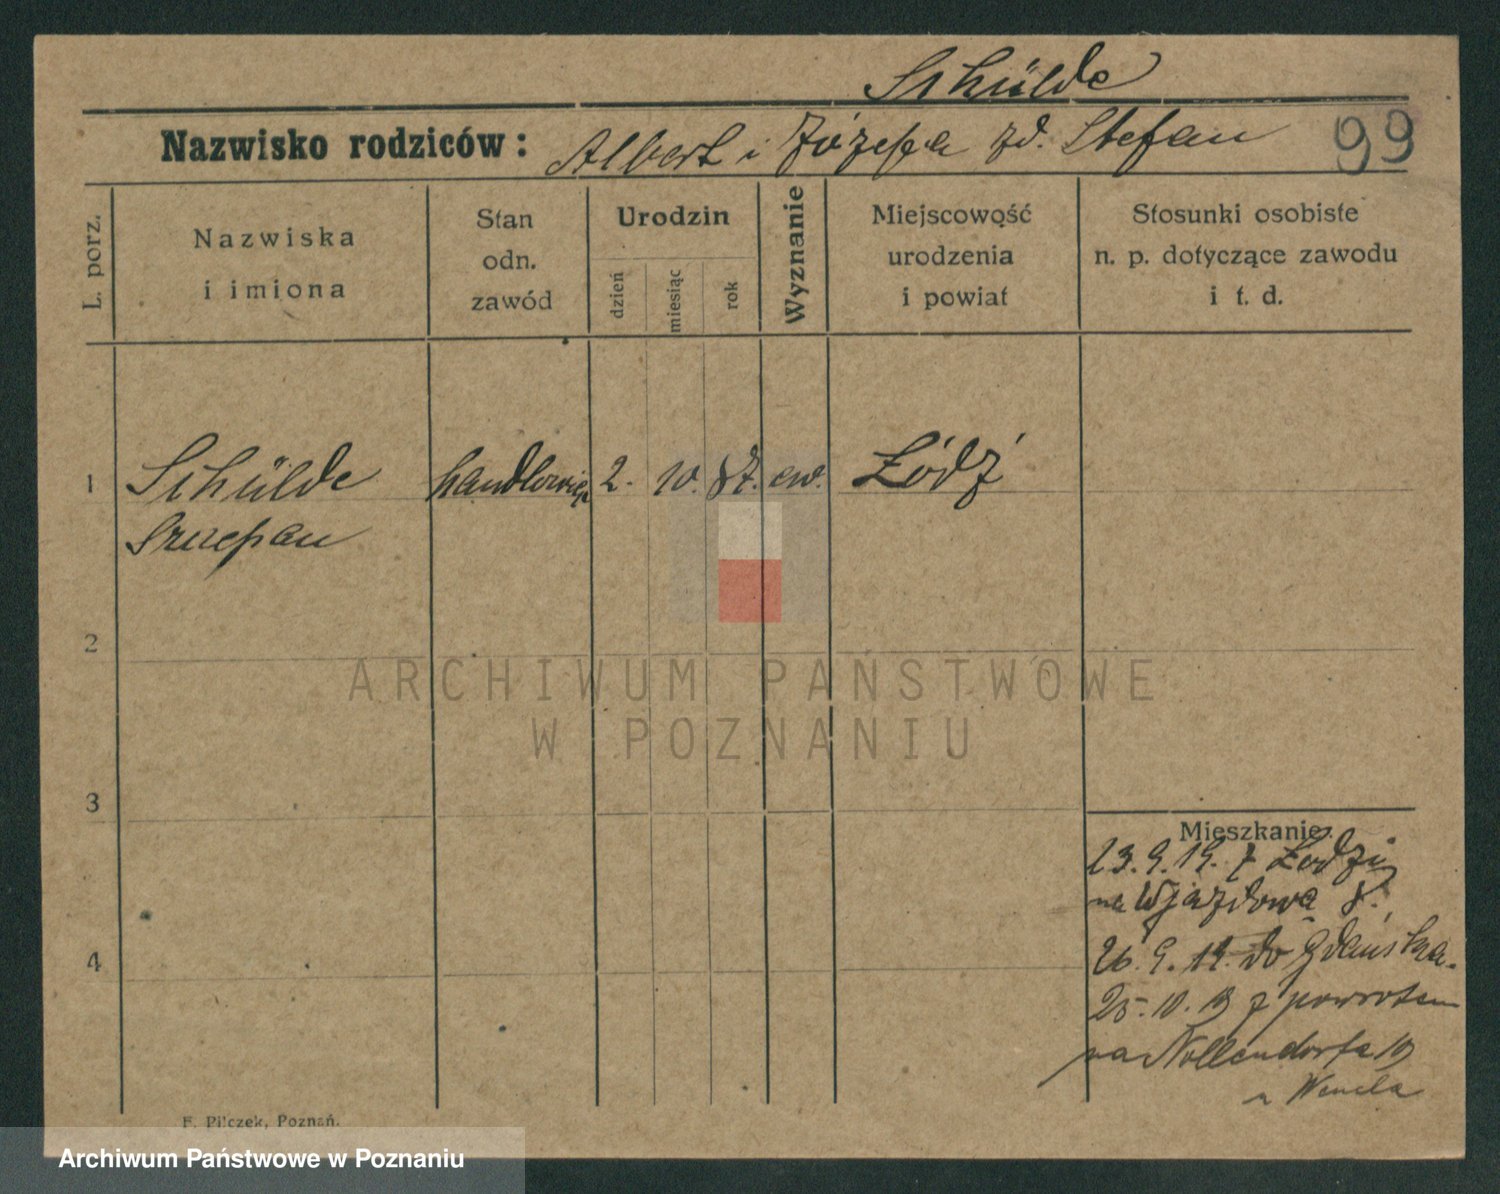 Schülde
Nazwisko rodziców: Albert i Józefa zd. Stefan 99
L. porz.
Nazwiska
i imiona
Stan
odn.
zawód
Urodzin
dzień
miesiąc
rok
Wyznanie
Miejscowość
urodzenia
i powiat
Stosunki osobiste
n. p. dotyczące zawodu
i t. d.
1 Schülde handlowiec 2. 10. 87. ew. Łódź
Szczepan
2
3
4
Mieszkanie.
23.9.19. z Łodzi
na Wjazdowa 8.
26.9.19. do Gdańska.
25.10.19 z powrotem
na Nollendorfa 19
F. Pilczek, Poznań.
ARCHIWUM PAŃSTWOWE
W POZNANIU
Archiwum Państwowe w Poznaniu